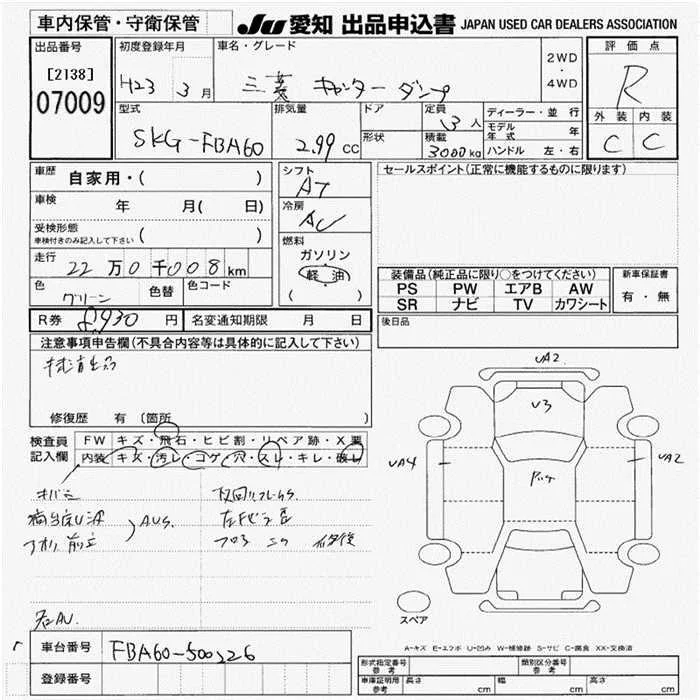 車内保管・守衛保管
JU 愛知 出品申込書 JAPAN USED CAR DEALERS ASSOCIATION
出品番号
[2138]
07009
初度登録年月
H23 3月
車名・グレード
三菱 キャンター ダンプ
2WD
・
4WD
評価点
R
外装 内装
C C
型式
SKG-FBA60
排気量
2.99cc
ドア
形状
定員
3人
積載
3000kg
ディーラー・並行
モデル年式 年
ハンドル 左・右
車歴
自家用・( )
車検
年 月( 日)
受検形態
車検付きのみ記入して下さい ( )
走行
22万0千008km
色
グリーン
色替
色コード
シフト
AT
冷房
AC
燃料
ガソリン
軽油
( )
セールスポイント(正常に機能するものに限ります)
装備品(純正品に限り○をつけてください)
PS PW エアB AW
SR ナビ TV カワシート
新車保証書
有・無
R券 8,930円
名変通知期限 月 日
後日品
注意事項申告欄(不具合内容等は具体的に記入して下さい)
修復歴 有 (箇所
検査員
記入欄
FW キズ・飛石・ヒビ割・リペア跡・X要
内装 キズ・汚レ・コゲ・穴・スレ・キレ・破レ
UA2
U3
UA4
UA2
スペア
A-キズ E-エクボ U-凹み W-補修跡 S-サビ C-腐食 XX-交換済
車台番号
FBA60-500226
登録番号
型式指定番号
参考
類別区分番号
参考
車庫証明用
参考
長さ cm 幅 cm 高さ cm